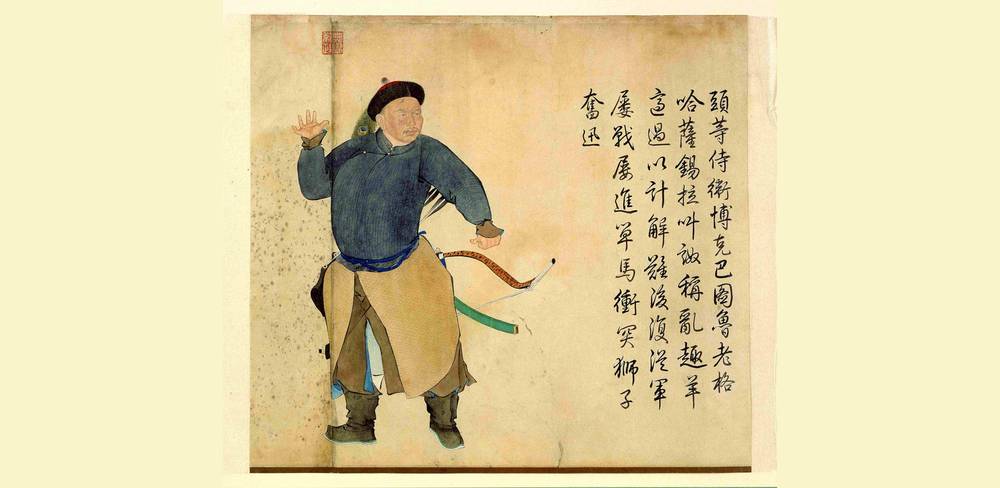 頭等侍衛博克巴圖魯老格
哈薩錫拉叫詉稱亂趣羊
適過以計解難後復從軍
屢戰屢進單馬衝突獅子
奮迅